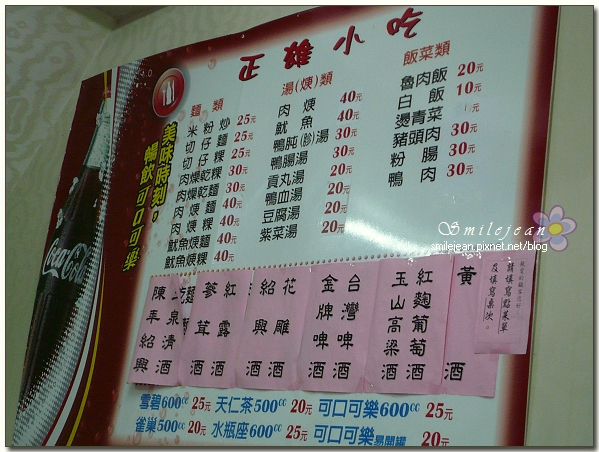 正雄小吃
麵 類
米粉炒 25元
切仔麵 25元
切仔粿 25元
肉燥乾麵 30元
肉燥乾粿 30元
肉焿麵 40元
肉焿粿 40元
魷魚焿麵 40元
魷魚焿粿 40元
湯(焿)類
肉焿 40元
魷魚 40元
鴨肫(胗)湯 30元
鴨腸湯 30元
貢丸湯 20元
鴨血湯 20元
豆腐湯 20元
紫菜湯 20元
飯菜類
魯肉飯 20元
白飯 10元
燙青菜
豬頭肉 30元
粉腸 30元
鴨肉 30元
美味時刻。
暢飲可口可樂
Coca-Cola
Smilejean
smilejean.pixnet.net/blog
請填寫點菜單
及填寫桌次。
黃酒
紅麴葡萄酒
玉山高梁酒
台灣啤酒
金牌啤酒
花雕酒
紹興酒
紅露酒
蔘茸酒
上泉清酒
陳年紹興
雪碧600cc 25元 天仁茶500cc 20元 可口可樂600cc 25元
雀巢500cc 20元 水瓶座600cc 25元 可口可樂易開罐 20元